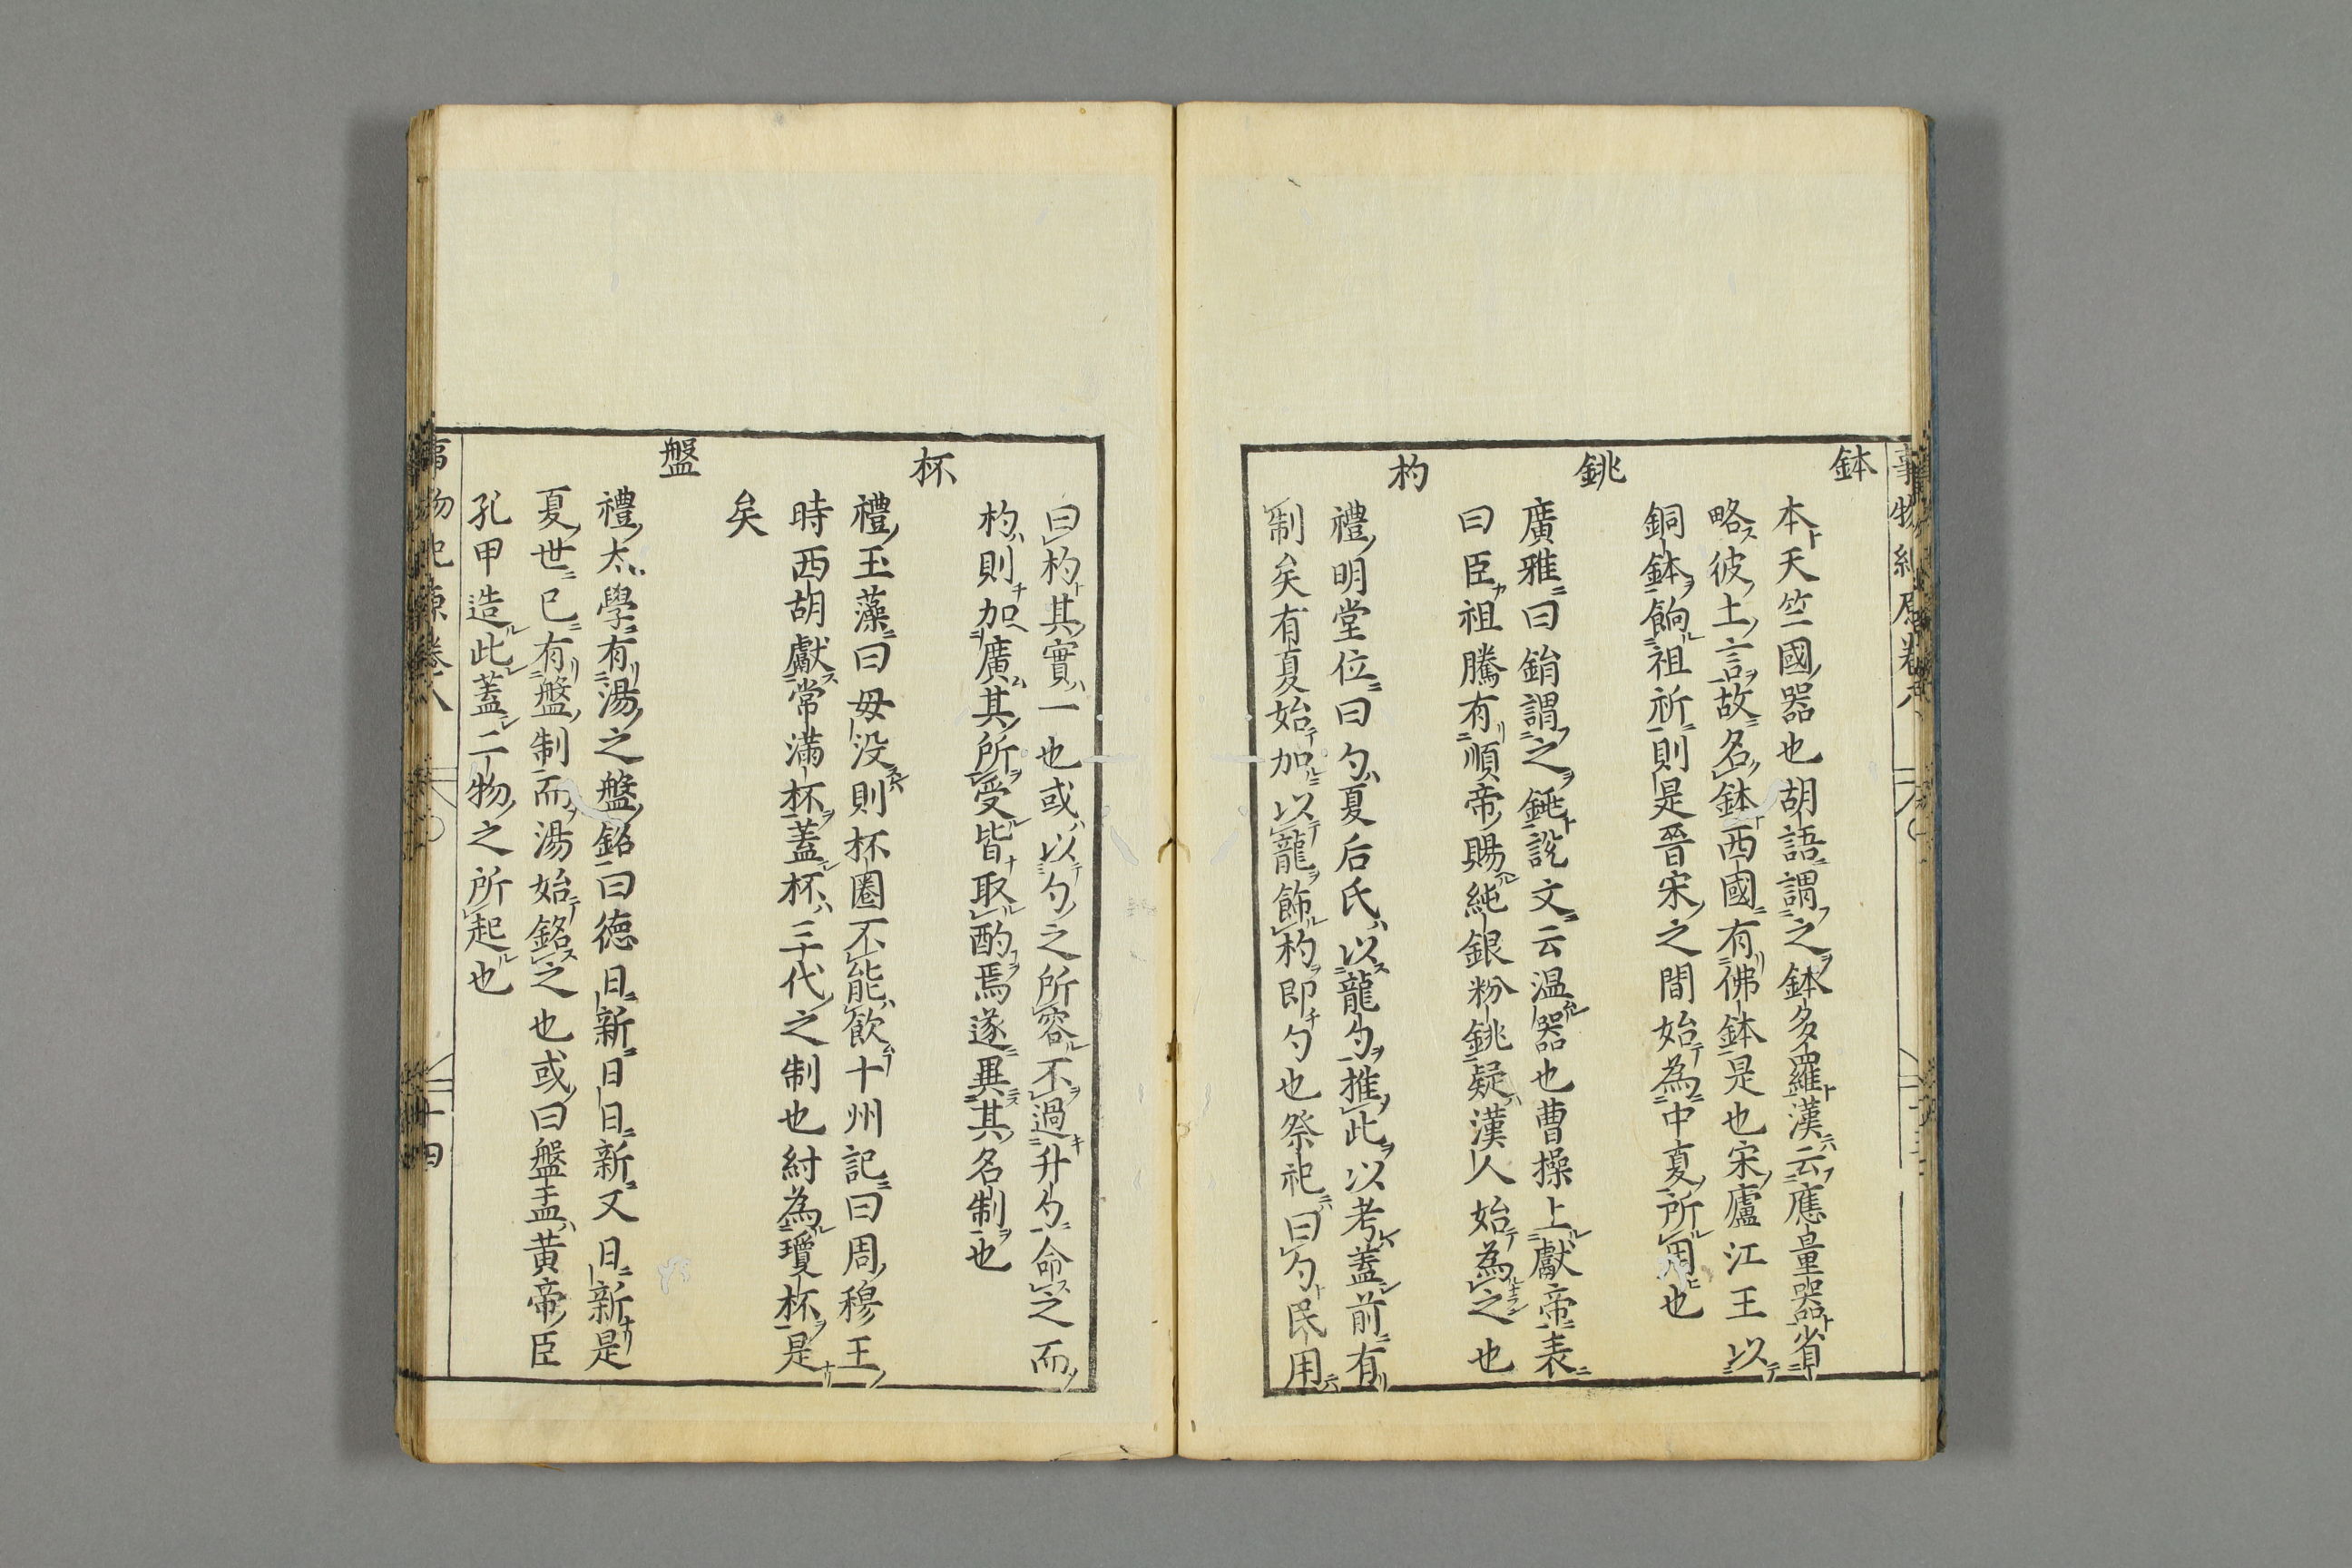 鉢
本天竺國器也胡語謂之鉢多羅漢云應量器省
略彼土言故名鉢西國有佛鉢是也宋廬江王以
銅鉢餉祖祈則是晉宋之間始為中夏所用也
銚
廣雅曰銷謂之銚說文云温器也曹操上獻帝表
曰臣祖騰有順帝賜純銀粉銚疑漢人始為之也
杓
禮明堂位曰勺夏后氏以龍勺推此以考蓋前有
制矣有夏始加以龍飾杓即勺也祭祀曰勺民用
曰杓其實一也或以勺之所容不過升勺命之而
杓則加廣其所受皆取酌焉遂異其名制也
杯
禮玉藻曰毋没則杯圈不能飲十州記曰周穆王
時西胡獻常滿杯蓋杯三代之制也紂為瓊杯是
矣
盤
禮太學有湯之盤銘曰徳日新日日新又日新是
夏世已有盤制而湯始銘之也或曰盤盂黄帝臣
孔甲造此蓋二物之所起也
事物紀原卷八
十四